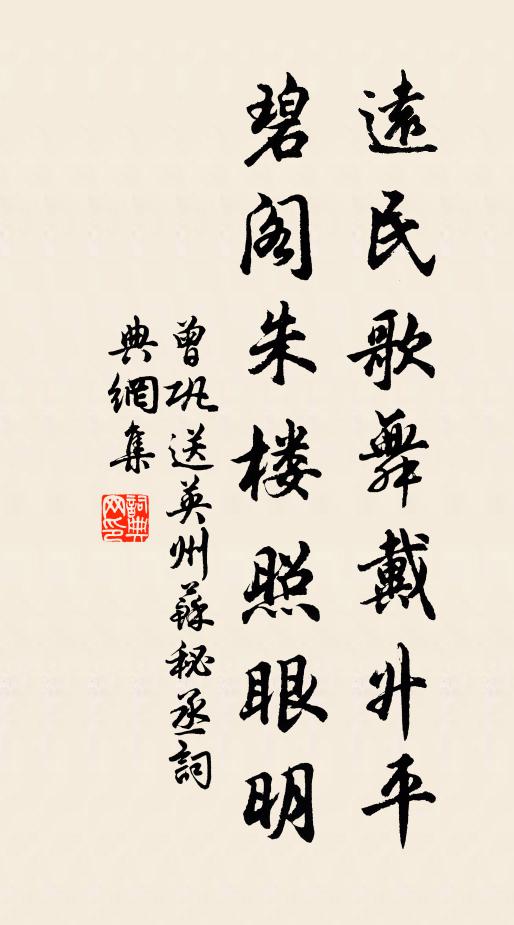 遠民歌舞戴升平
碧阁朱楼照眼明
曾巩送英州蘇秘丞詞
典網集
詞典網印